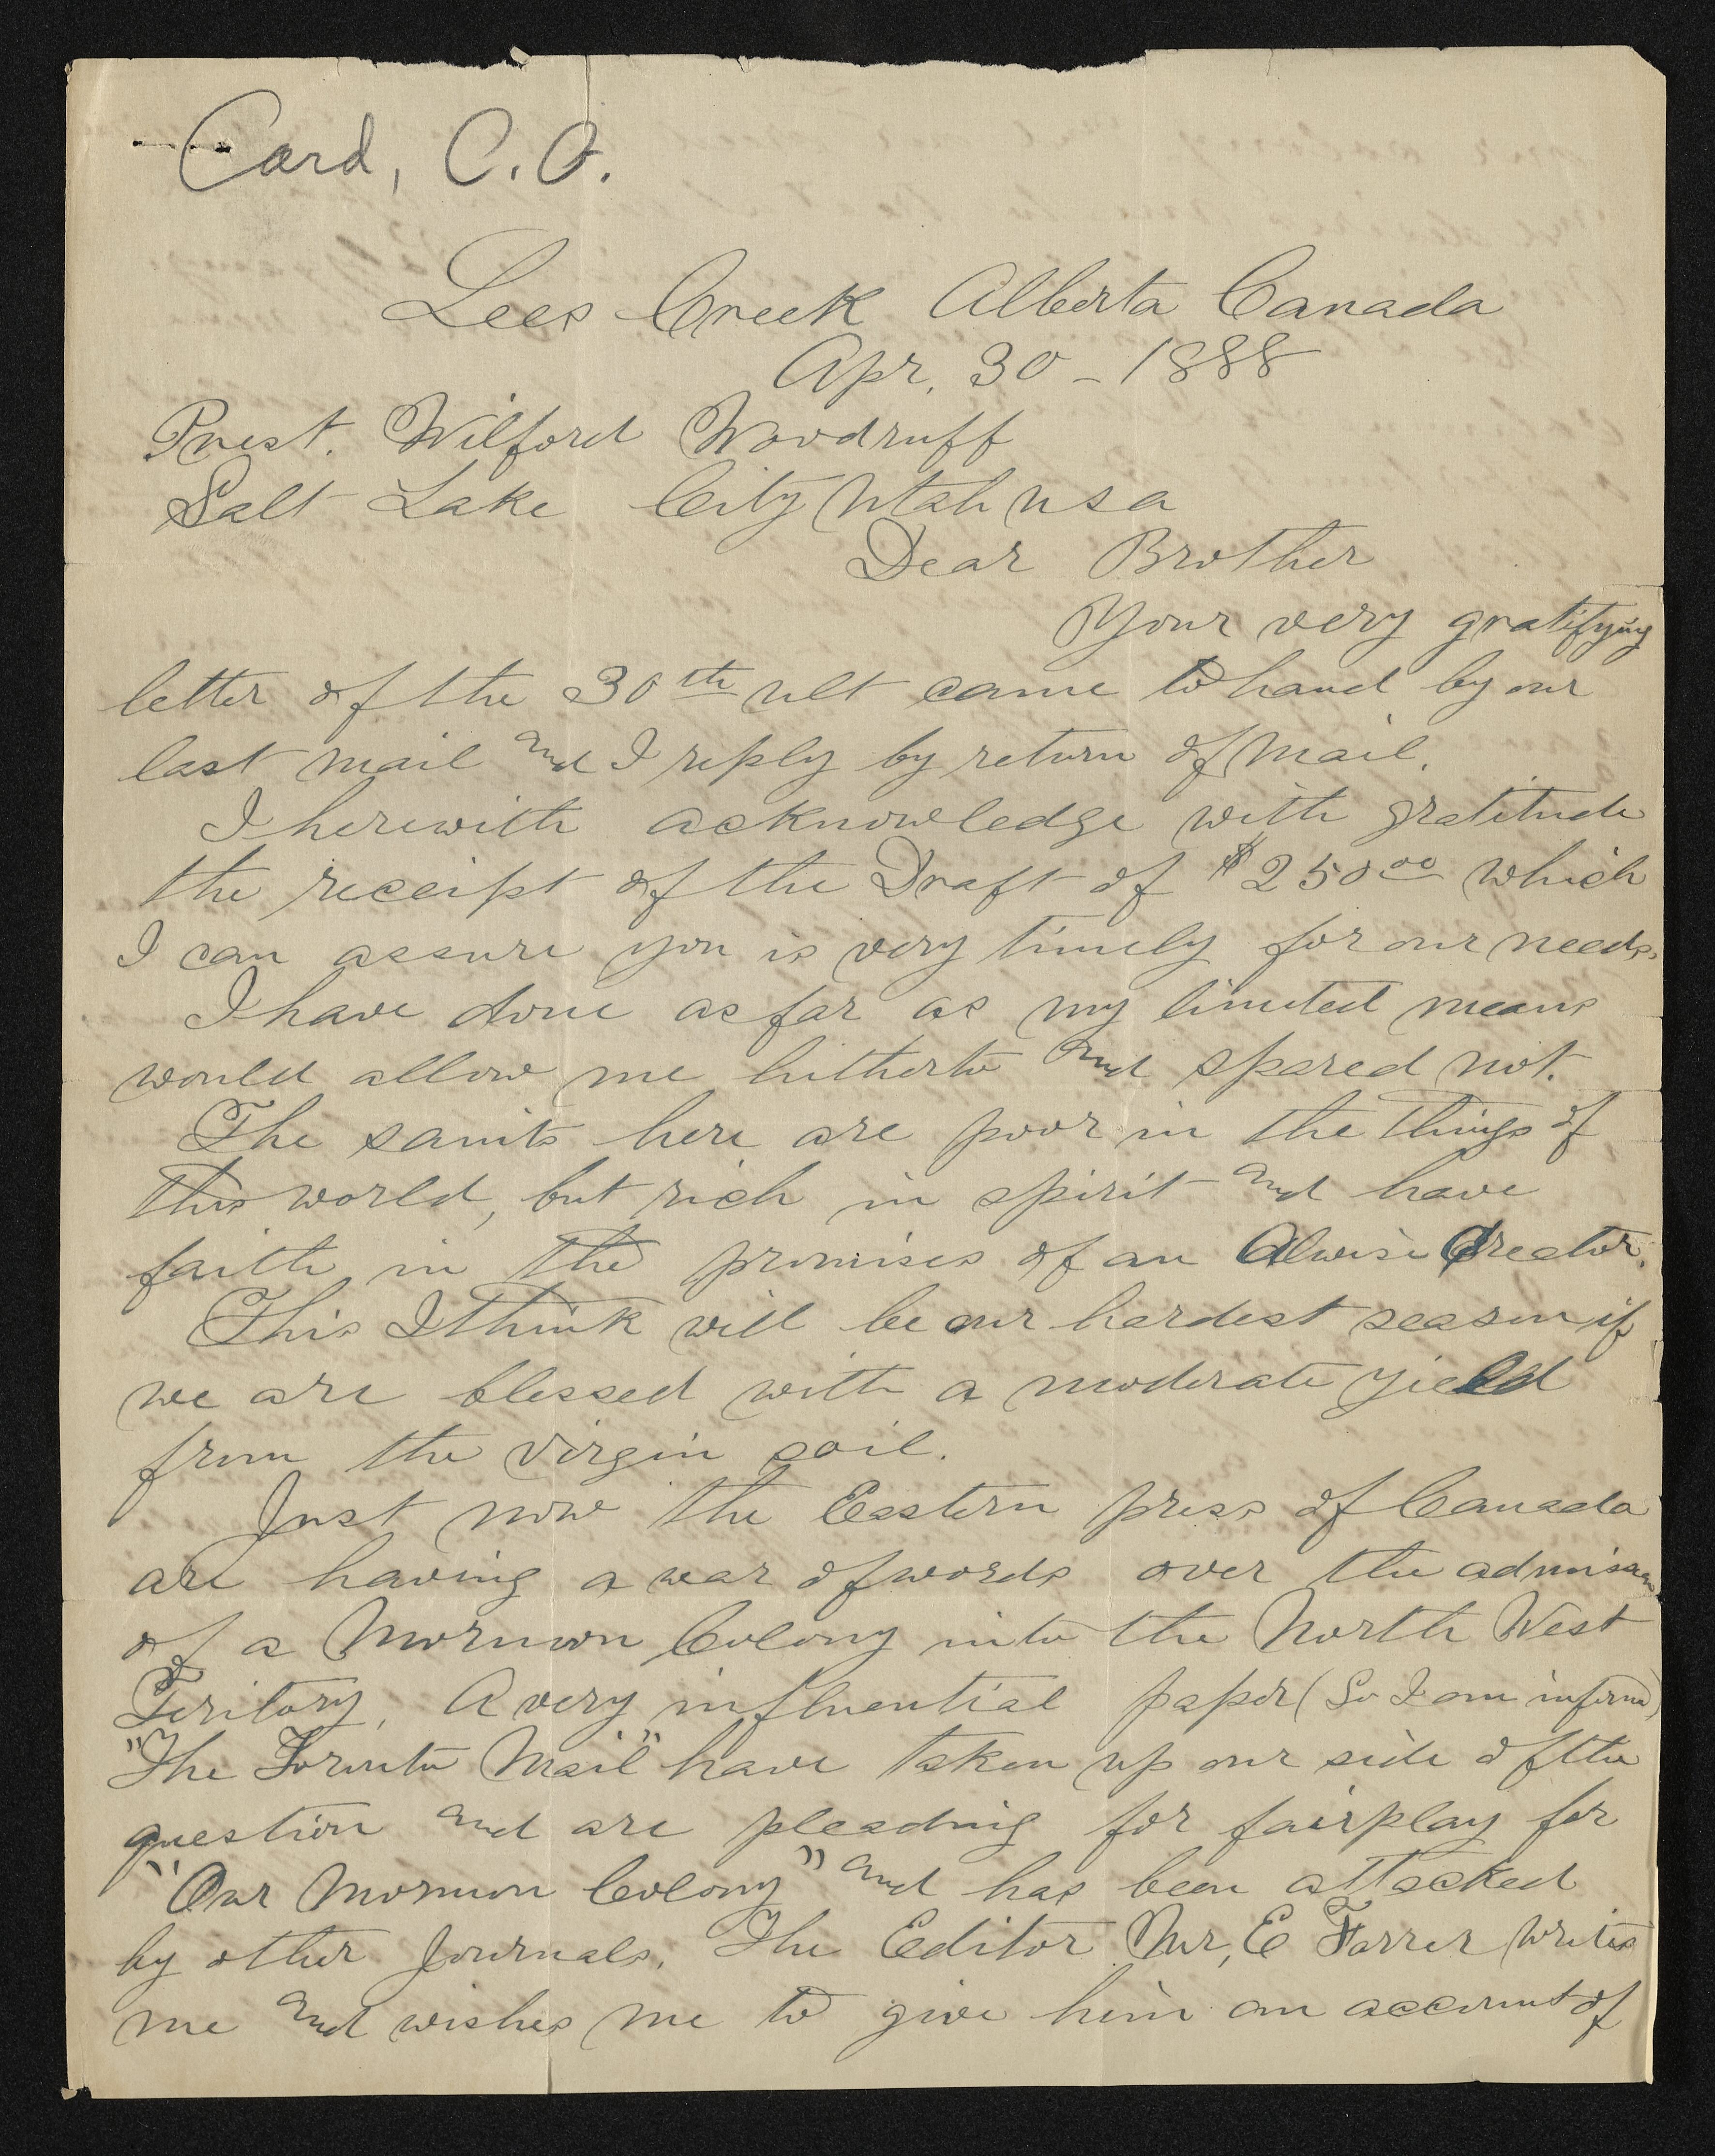 Card, C.O.
Lees Creek Alberta Canada
Apr. 30 - 1888
Prest. Wilford Woodruff
Salt Lake City Utah USA
Dear Brother
Your very gratifying
letter of the 30th ult came to hand by our
last mail and I reply by return of mail.
I herewith acknowledge with gratitude
the receipt of the Draft of $250.00 which
I can assure you is very timely for our needs.
I have done as far as my limited means
would allow me hitherto and spared not.
The saints here are poor in the things of
this world, but rich in spirit and have
faith in the promises of an Alwise Creator.
This I think will be our hardest season if
we are blessed with a moderate yield
from the virgin soil.
Just now the Eastern press of Canada
are having a war of words over the admission
of a Mormon Colony into the North West
Teritory, A very influential paper (So I am informd)
"The Toronto Mail" have taken up our side of the
question and are pleading for fairplay for
"Our Mormon Colony" and has been attacked
by other Journals. The Editor Mr, E Farrer writes
me and wishes me to give him an account of